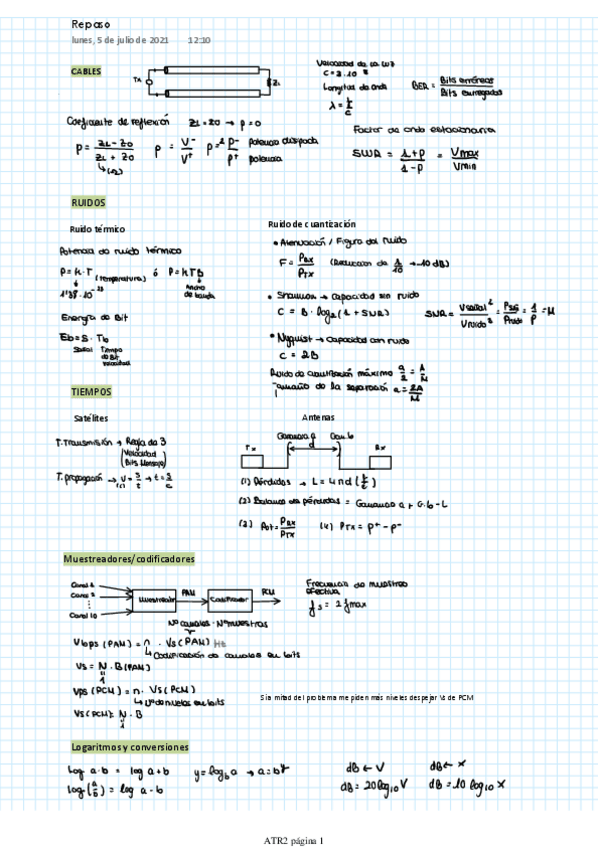 Reposo
lunes, 5 de julio de 2021 12:10
CABLES
Tx
ZL
Velocidad de la luz
C = 3·10⁸
Longitud de onda
λ = c/f
BER = Bits erróneos / Bits entregados
Coeficiente de reflexión ZL = Z0 → ρ = 0
ρ = (ZL - Z0) / (ZL + Z0) ρ = V⁻ / V⁺ ρ² = P⁻ / P⁺
↳ (Ω)
Factor de onda estacionaria
SWR = (1 + ρ) / (1 - ρ) = Vmax / Vmin
RUIDOS
Ruido térmico
Potencia de ruido térmico
P = k·T (temperatura) ó P = kTB
1'38·10⁻²³
Ancho de banda
Energía de Bit
Eb = S · Tb
Señal Tiempo de Bit
Ruido de cuantización
• Atenuación / Figura del ruido
F = PBX / PTX
• Shannon → Capacidad sin ruido
C = B · log₂ (1 + SNR)
SNR = Vseñal² / Vruido² = Pseñ / Pruido = 1/P = M
• Nyquist → Capacidad con ruido
C = 2B
Ruido de cuantización máximo a/2 = A/M
Tamaño de la separación a = 2A/M
TIEMPOS
Satélites
T. Transmisión → Regla de 3
(Velocidad
Bits Mensaje)
T. propagación → v = s/t → t = s/c
Antenas
Tx
Ganancia a
Gan. b
d
Rx
(1) Pérdidas → L = 4πd (f/c)
(2) Balance de pérdidas = Ganancia a + G. b - L
(3) Pot = PBX / PTX (4) PTX = P⁺ - P⁻
Muestreadores/codificadores
Canal 1
Canal 2
Canal 10
Muestreador
PAM
Codificador
PCM
Nº canales · Nº muestras
Frecuencia de muestreo
efectiva
fs = 2 fmax
Vbps (PAM) = n · Vs (PAM) Hz
↳ Codificación de canales en bits
Vs = N · B (PAM)
Vps (PCM) = n · Vs (PCM)
↳ Nº de niveles en bits
Vs (PCM): N · B
Si a mitad del problema me piden más niveles despejar Vs de PCM
Logaritmos y conversiones
log a·b = log a + b y = log_b a → a = b^y
log (a/b) = log a - b
dB ← V
dB = 20 log₁₀ V
dB ← X
dB = 10 log₁₀ X
ATR2 página 1